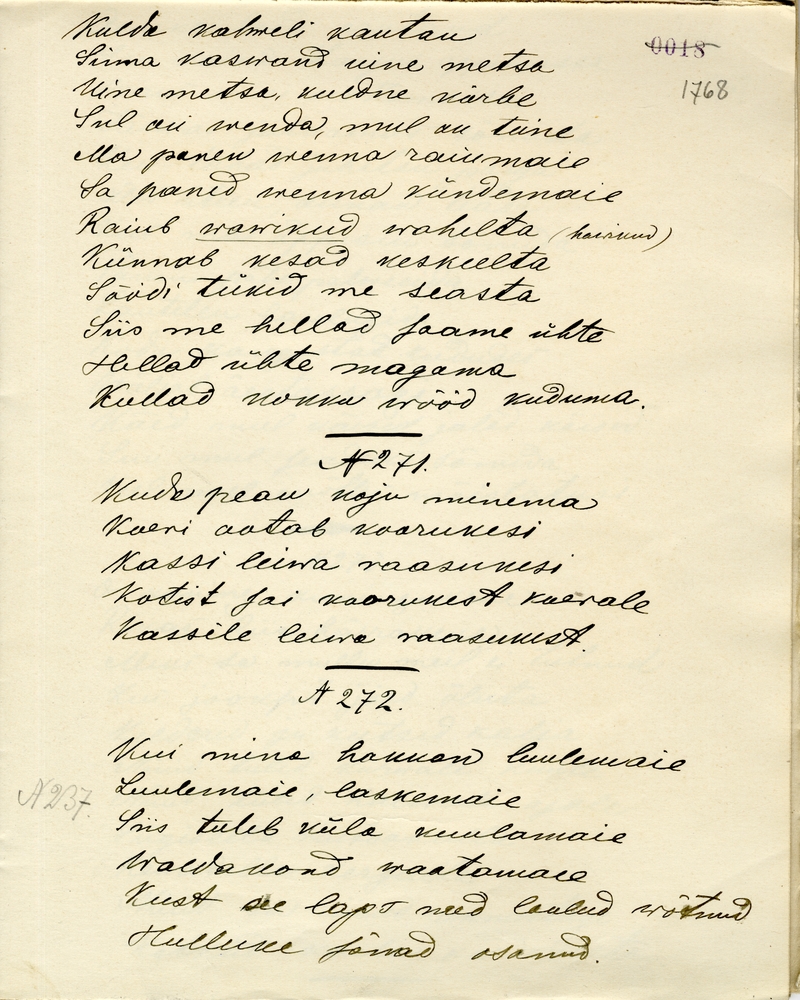 Kulda kahweli kautau
0018
Sinna kaswand uine metsa
1768
Uine metsa, kuldne kõrbe
Sul on wenda, mul on teine
Ma panen wenna raiumaie
Sa paned wenna kündemaie
Raiub wawikud wahelta (hawikud)
Künnab kesad keskeelta
Söödi tükid me seasta
Siis me hellad saame ühte
Hellad ühte magama
Kullad kokku wööd kuduma.
N 271.
Kuda pean koju minema
Koeri ootab koorukesi
Kassi leiwa raasukesi
Kotist sai koorukest koerale
Kassile leiwa raasukest.
N 272.
Kui mina hakkan luulemaie
N 237.
Luulemaie, laskemaie
Siis tuleb küla kuulamaie
Waldakond waatamaie
Kust see laps need laulud wõtnud
Hulluke sõnad osanud.